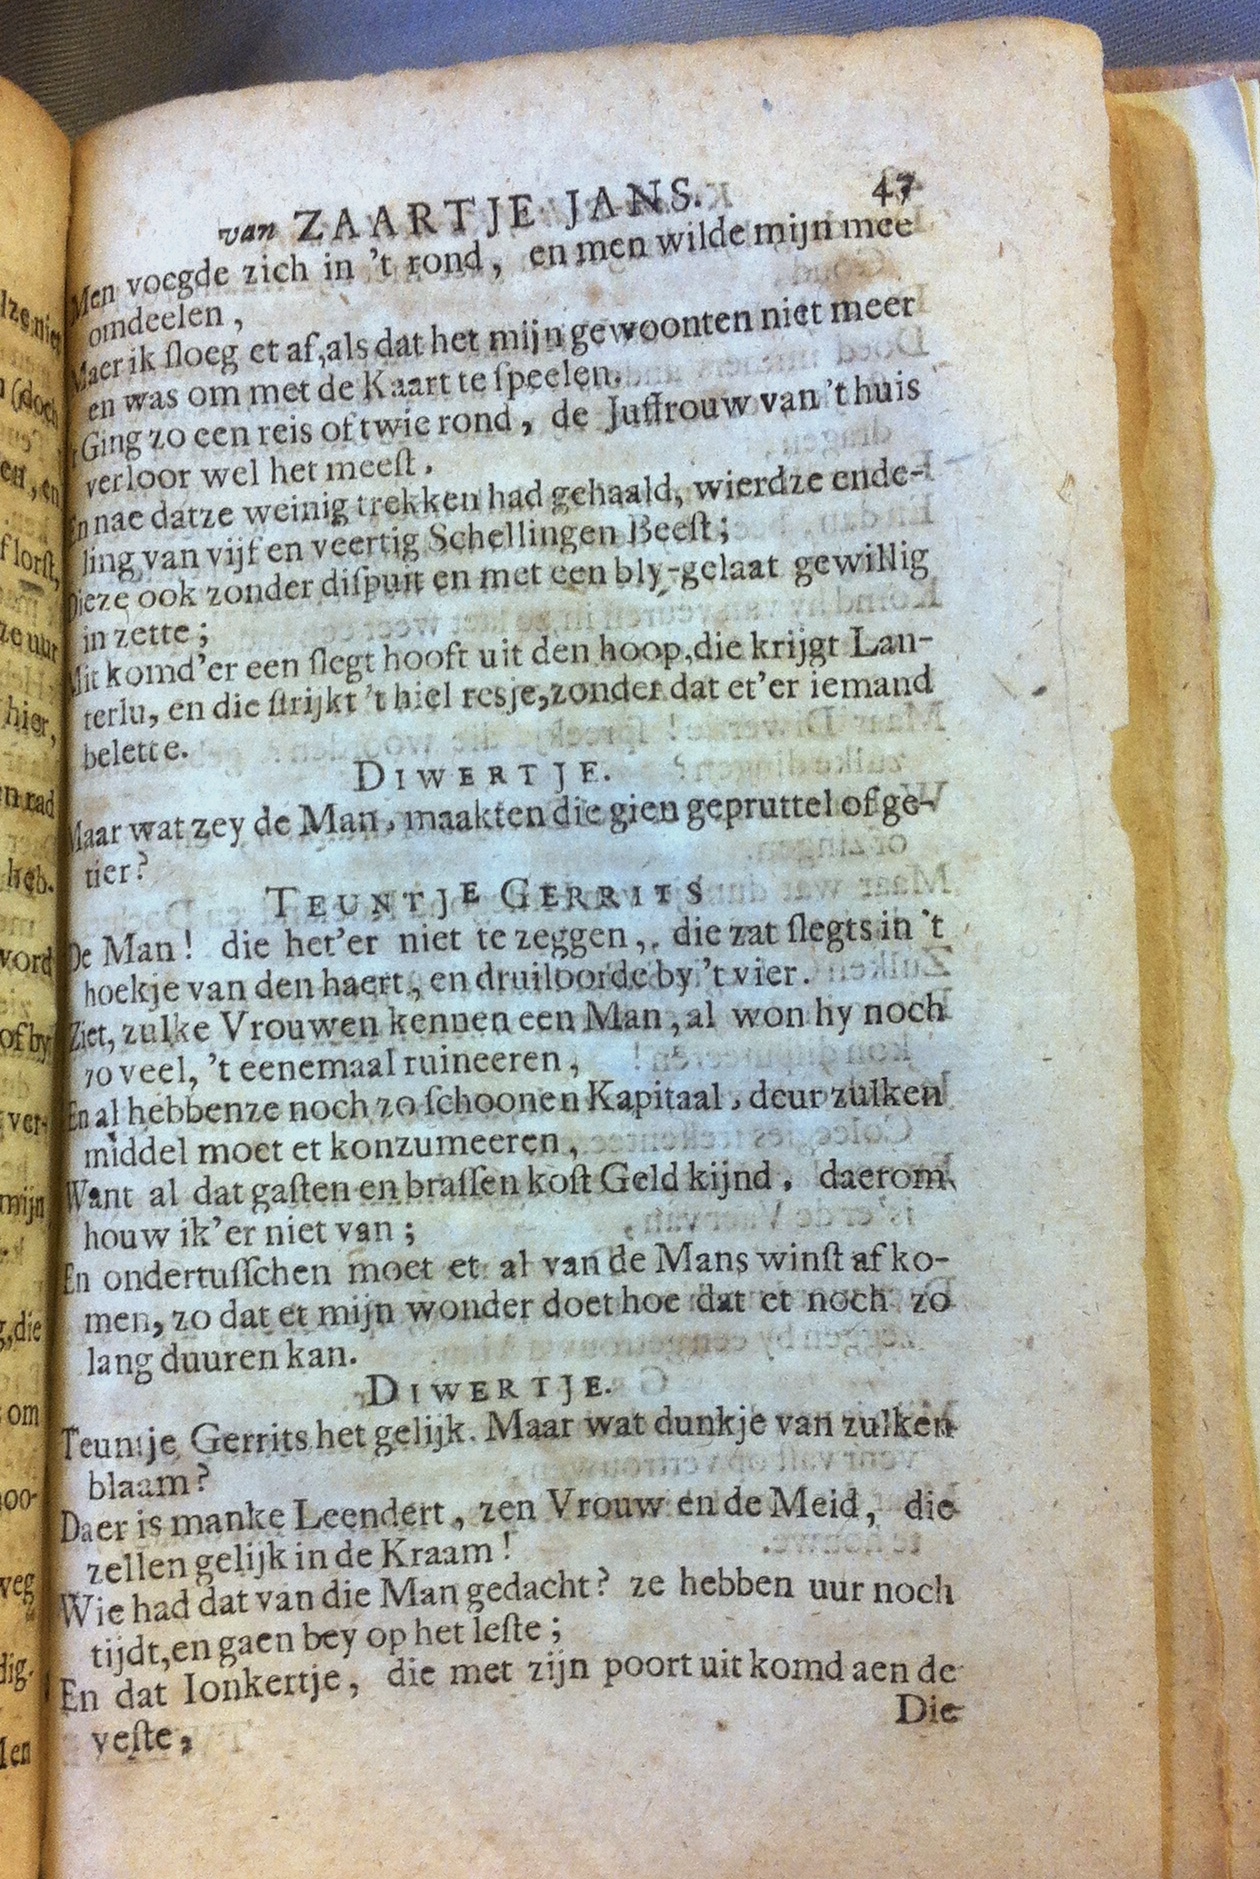 van ZAARTJE JANS. 47
Men voegde zich in 't rond, en men wilde mijn mee
omdeelen,
Maer ik ſloeg et af, als dat het mijn gewoonten niet meer
en was om met de Kaart te ſpeelen.
't Ging zo een reis of twie rond, de Juffrouw van 't huis
verloor wel het meeſt.
En nae datze weinig trekken had gehaald, wierdze ende-
ling van vijf en veertig Schellingen Beeſt;
Dieze ook zonder diſpuit en met een bly-gelaat gewillig
in zette;
Mit komd'er een ſlegt hooft uit den hoop, die krijgt Lan-
terlu, en die ſtrijkt 't hiel resje, zonder dat et'er iemand
belette.
DIWERTJE.
Maar wat zey de Man, maakten die gien gepruttel of ge-
tier?
TEUNTJE GERRITS
De Man! die het'er niet te zeggen, die zat ſlegts in 't
hoekje van den haert, en druiloorde by 't vier.
Ziet, zulke Vrouwen kennen een Man, al won hy noch
zo veel, 't eenemaal ruineeren,
En al hebbenze noch zo ſchoonen Kapitaal, deur zulken
middel moet et konzumeeren,
Want al dat gaſten en braſſen koſt Geld kijnd, daerom
houw ik'er niet van;
En ondertuſſchen moet et al van de Mans winſt af ko-
men, zo dat et mijn wonder doet hoe dat et noch zo
lang duuren kan.
DIWERTJE.
Teuntje Gerrits het gelijk. Maar wat dunkje van zulken
blaam?
Daer is manke Leendert, zen Vrouw en de Meid, die
zellen gelijk in de Kraam!
Wie had dat van die Man gedacht? ze hebben uur noch
tijdt, en gaen bey op het leſte;
En dat Ionkertje, die met zijn poort uit komd aen de
veſte,
Die